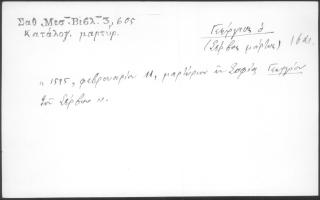 Σαθ. „Μεσ. Βιβλ." 3, 605
Κατάλογ. μαρτύρ.
Γεώργιος ὁ
(Σέρβος μάρτυς) 16 αι.
„ 1515, φεβρουαρίου 11, μαρτύριον ἐν Σοφίᾳ Γεωργίου
τοῦ Σέρβου „.